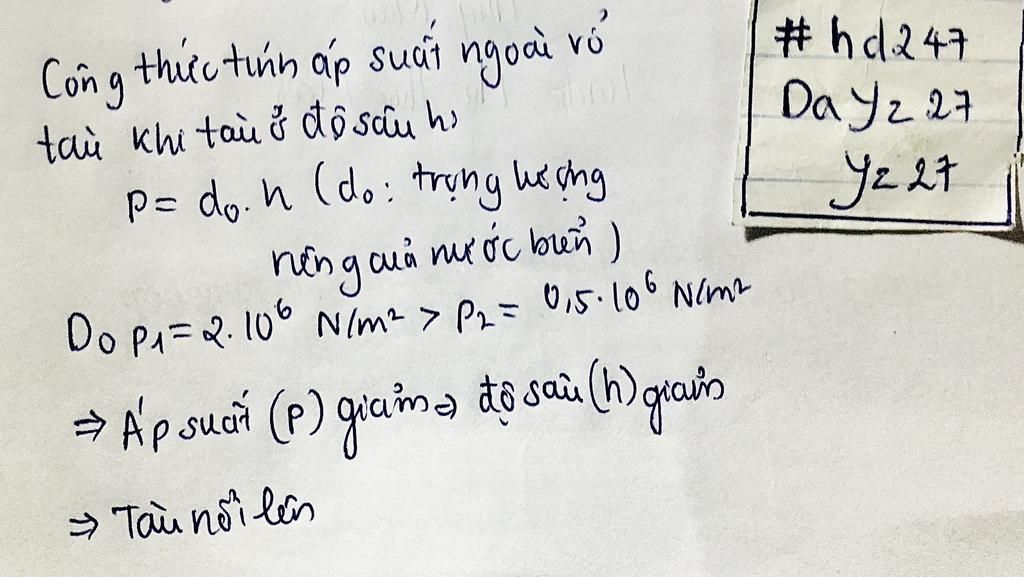 Công thức tính áp suất ngoài vỏ
tàu khi tàu ở độ sâu h,
p = d₀.h (d₀: trọng lượng
riêng của nước biển)
Do p₁ = 2.10⁶ N/m² > p₂ = 0,5.10⁶ N/m²
⇒ Áp suất (p) giảm ⇒ độ sâu (h) giảm
⇒ Tàu nổi lên
# hd247
Dayz27
yz27